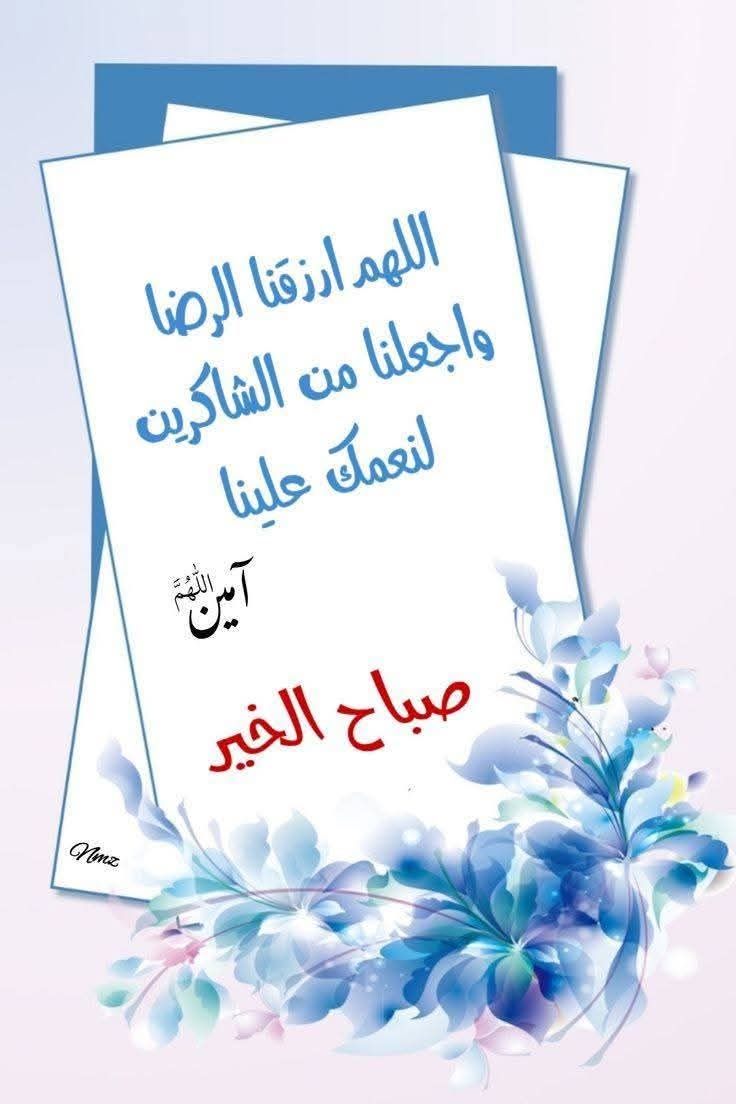 اللهم ارزقنا الرضا
واجعلنا من الشاكرين
لنعمك علينا
آمين اللَّهُمَّ
صباح الخير
Nmz